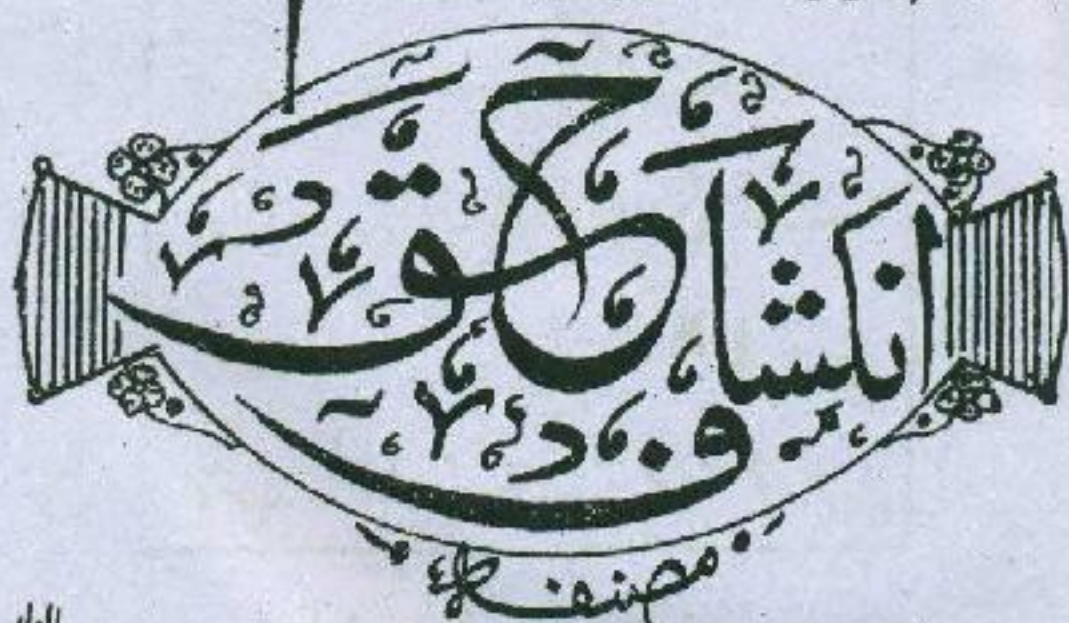 انکشاف حق
مصنفہ